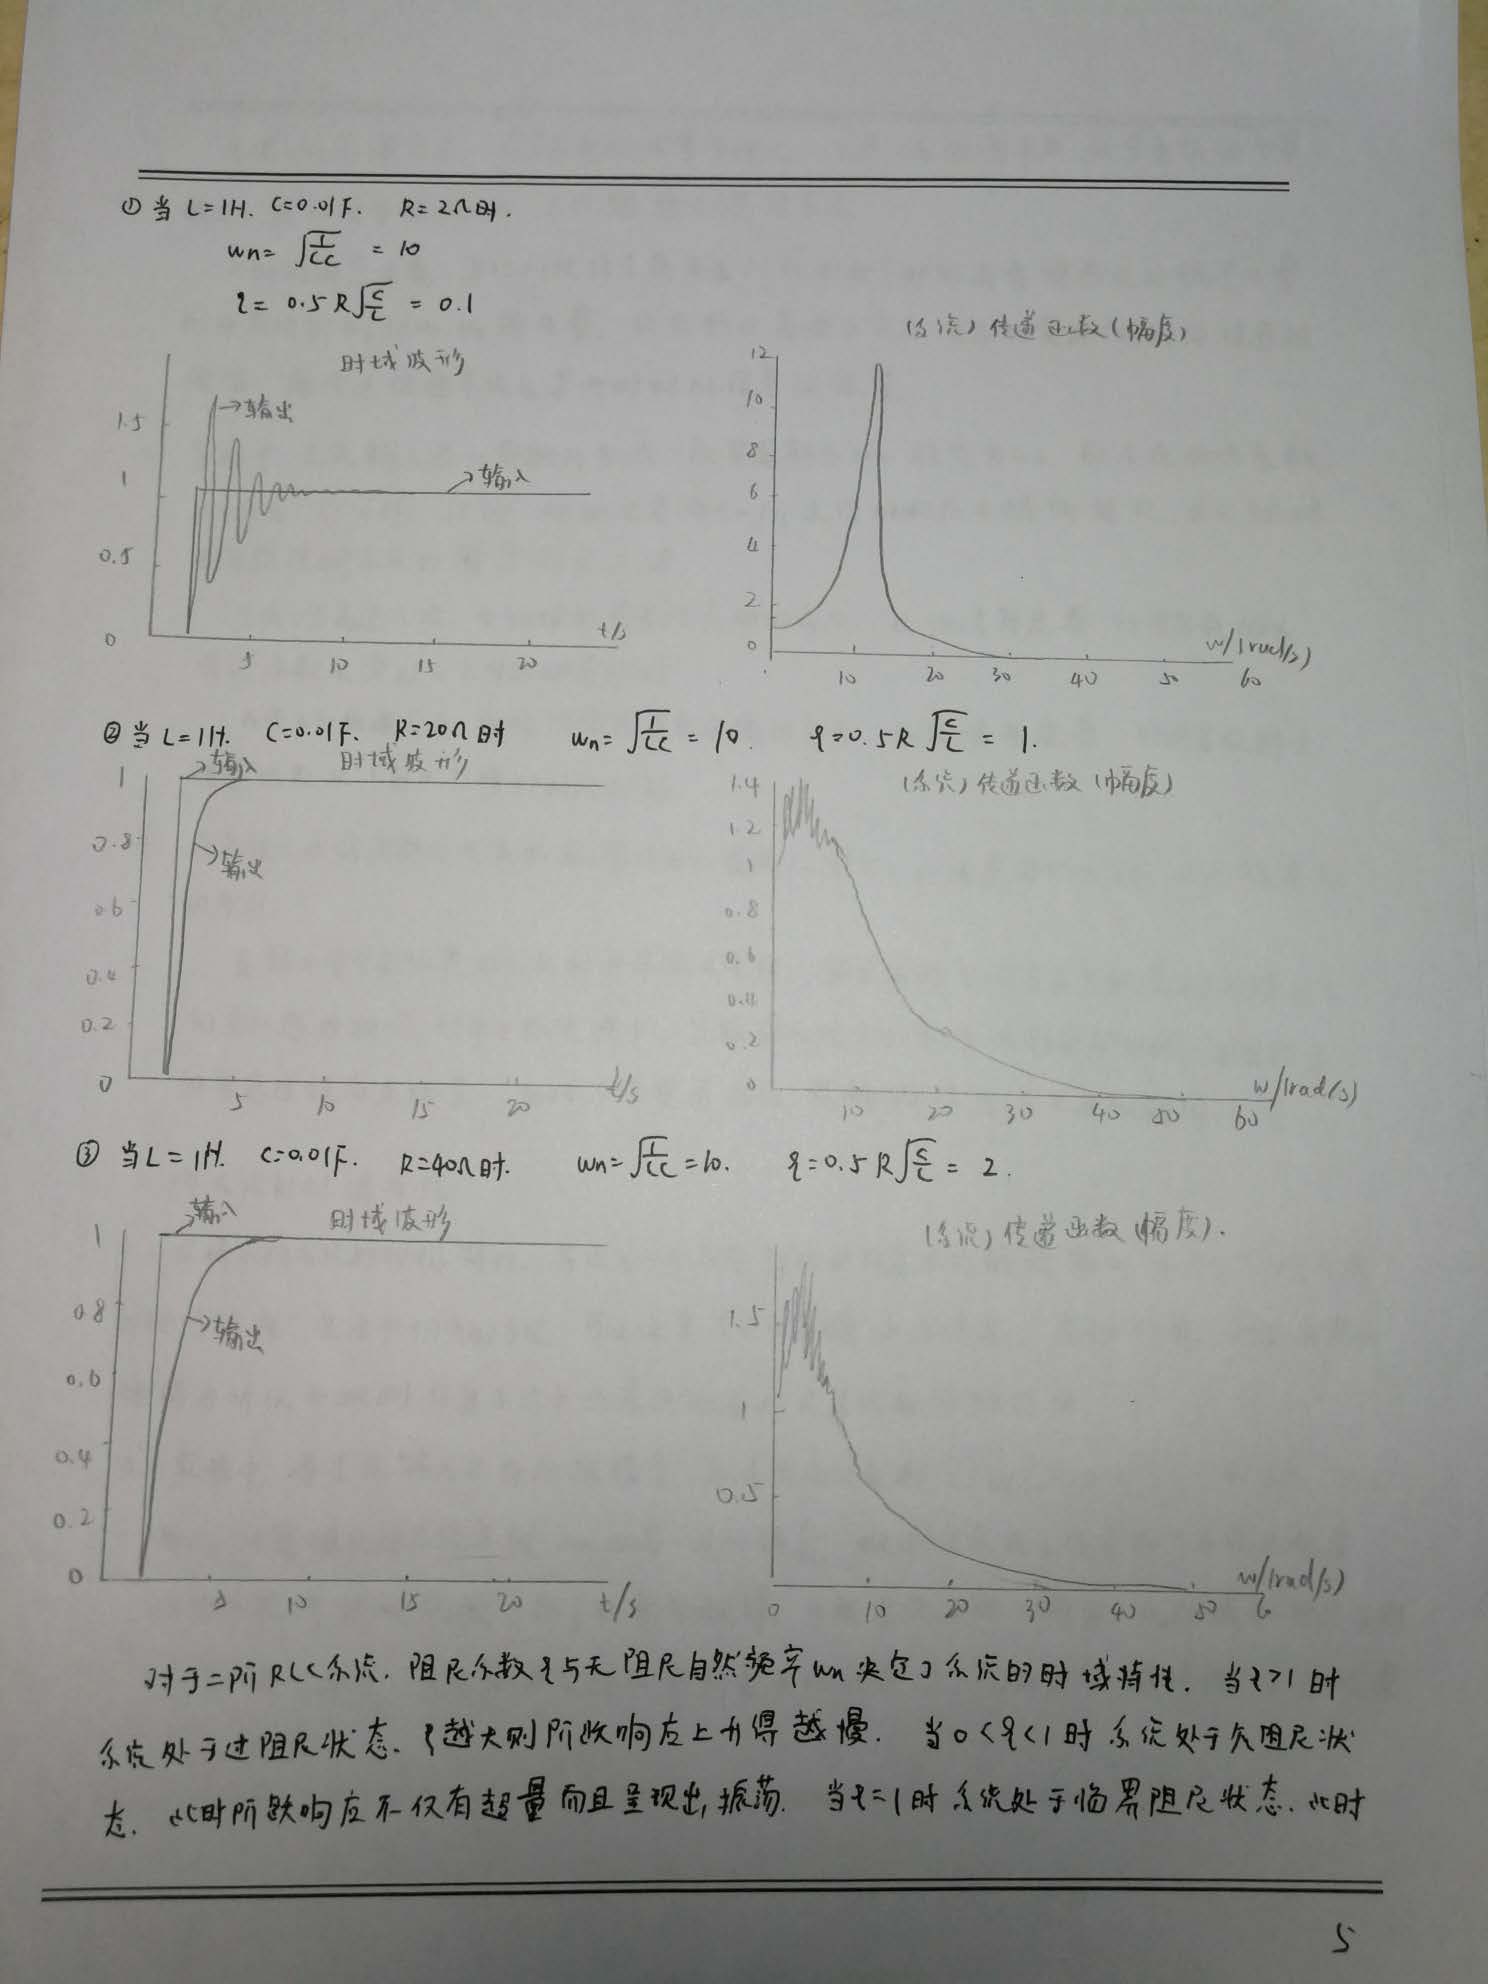 ① 当 L=1H. C=0.01F. R=2Ω时.
wn= √1/LC = 10
ξ= 0.5R√C/L = 0.1
时域波形
(系统)传递函数(幅度)
1.5
1
0.5
0
→输出
→输入
5 10 15 20
t/s
12
10
8
6
4
2
0
10 20 30 40 50 60
w/(rad/s)
② 当 L=1H. C=0.01F. R=20Ω时 wn=√1/LC = 10. ξ=0.5R√C/L = 1.
→输入 时域波形
(系统)传递函数(幅度)
1
0.8
0.6
0.4
0.2
0
→输出
5 10 15 20
t/s
1.4
1.2
1
0.8
0.6
0.4
0.2
0
10 20 30 40 50 60
w/(rad/s)
③ 当L=1H. C=0.01F. R=40Ω时. wn=√1/LC=10. ξ=0.5R√C/L = 2.
→输入 时域波形
(系统)传递函数(幅度).
1
0.8
0.6
0.4
0.2
0
→输出
5 10 15 20
t/s
1.5
1
0.5
0 10 20 30 40 50 6
w/(rad/s)
对于二阶RLC系统.阻尼系数ξ与无阻尼自然频率wn决定了系统的时域特性.当ξ>1时
系统处于过阻尼状态.ξ越大则阶跃响应上升得越慢.当0<ξ<1时系统处于欠阻尼状
态.此时阶跃响应不仅有超量而且呈现出振荡.当ξ=1时系统处于临界阻尼状态.此时
5